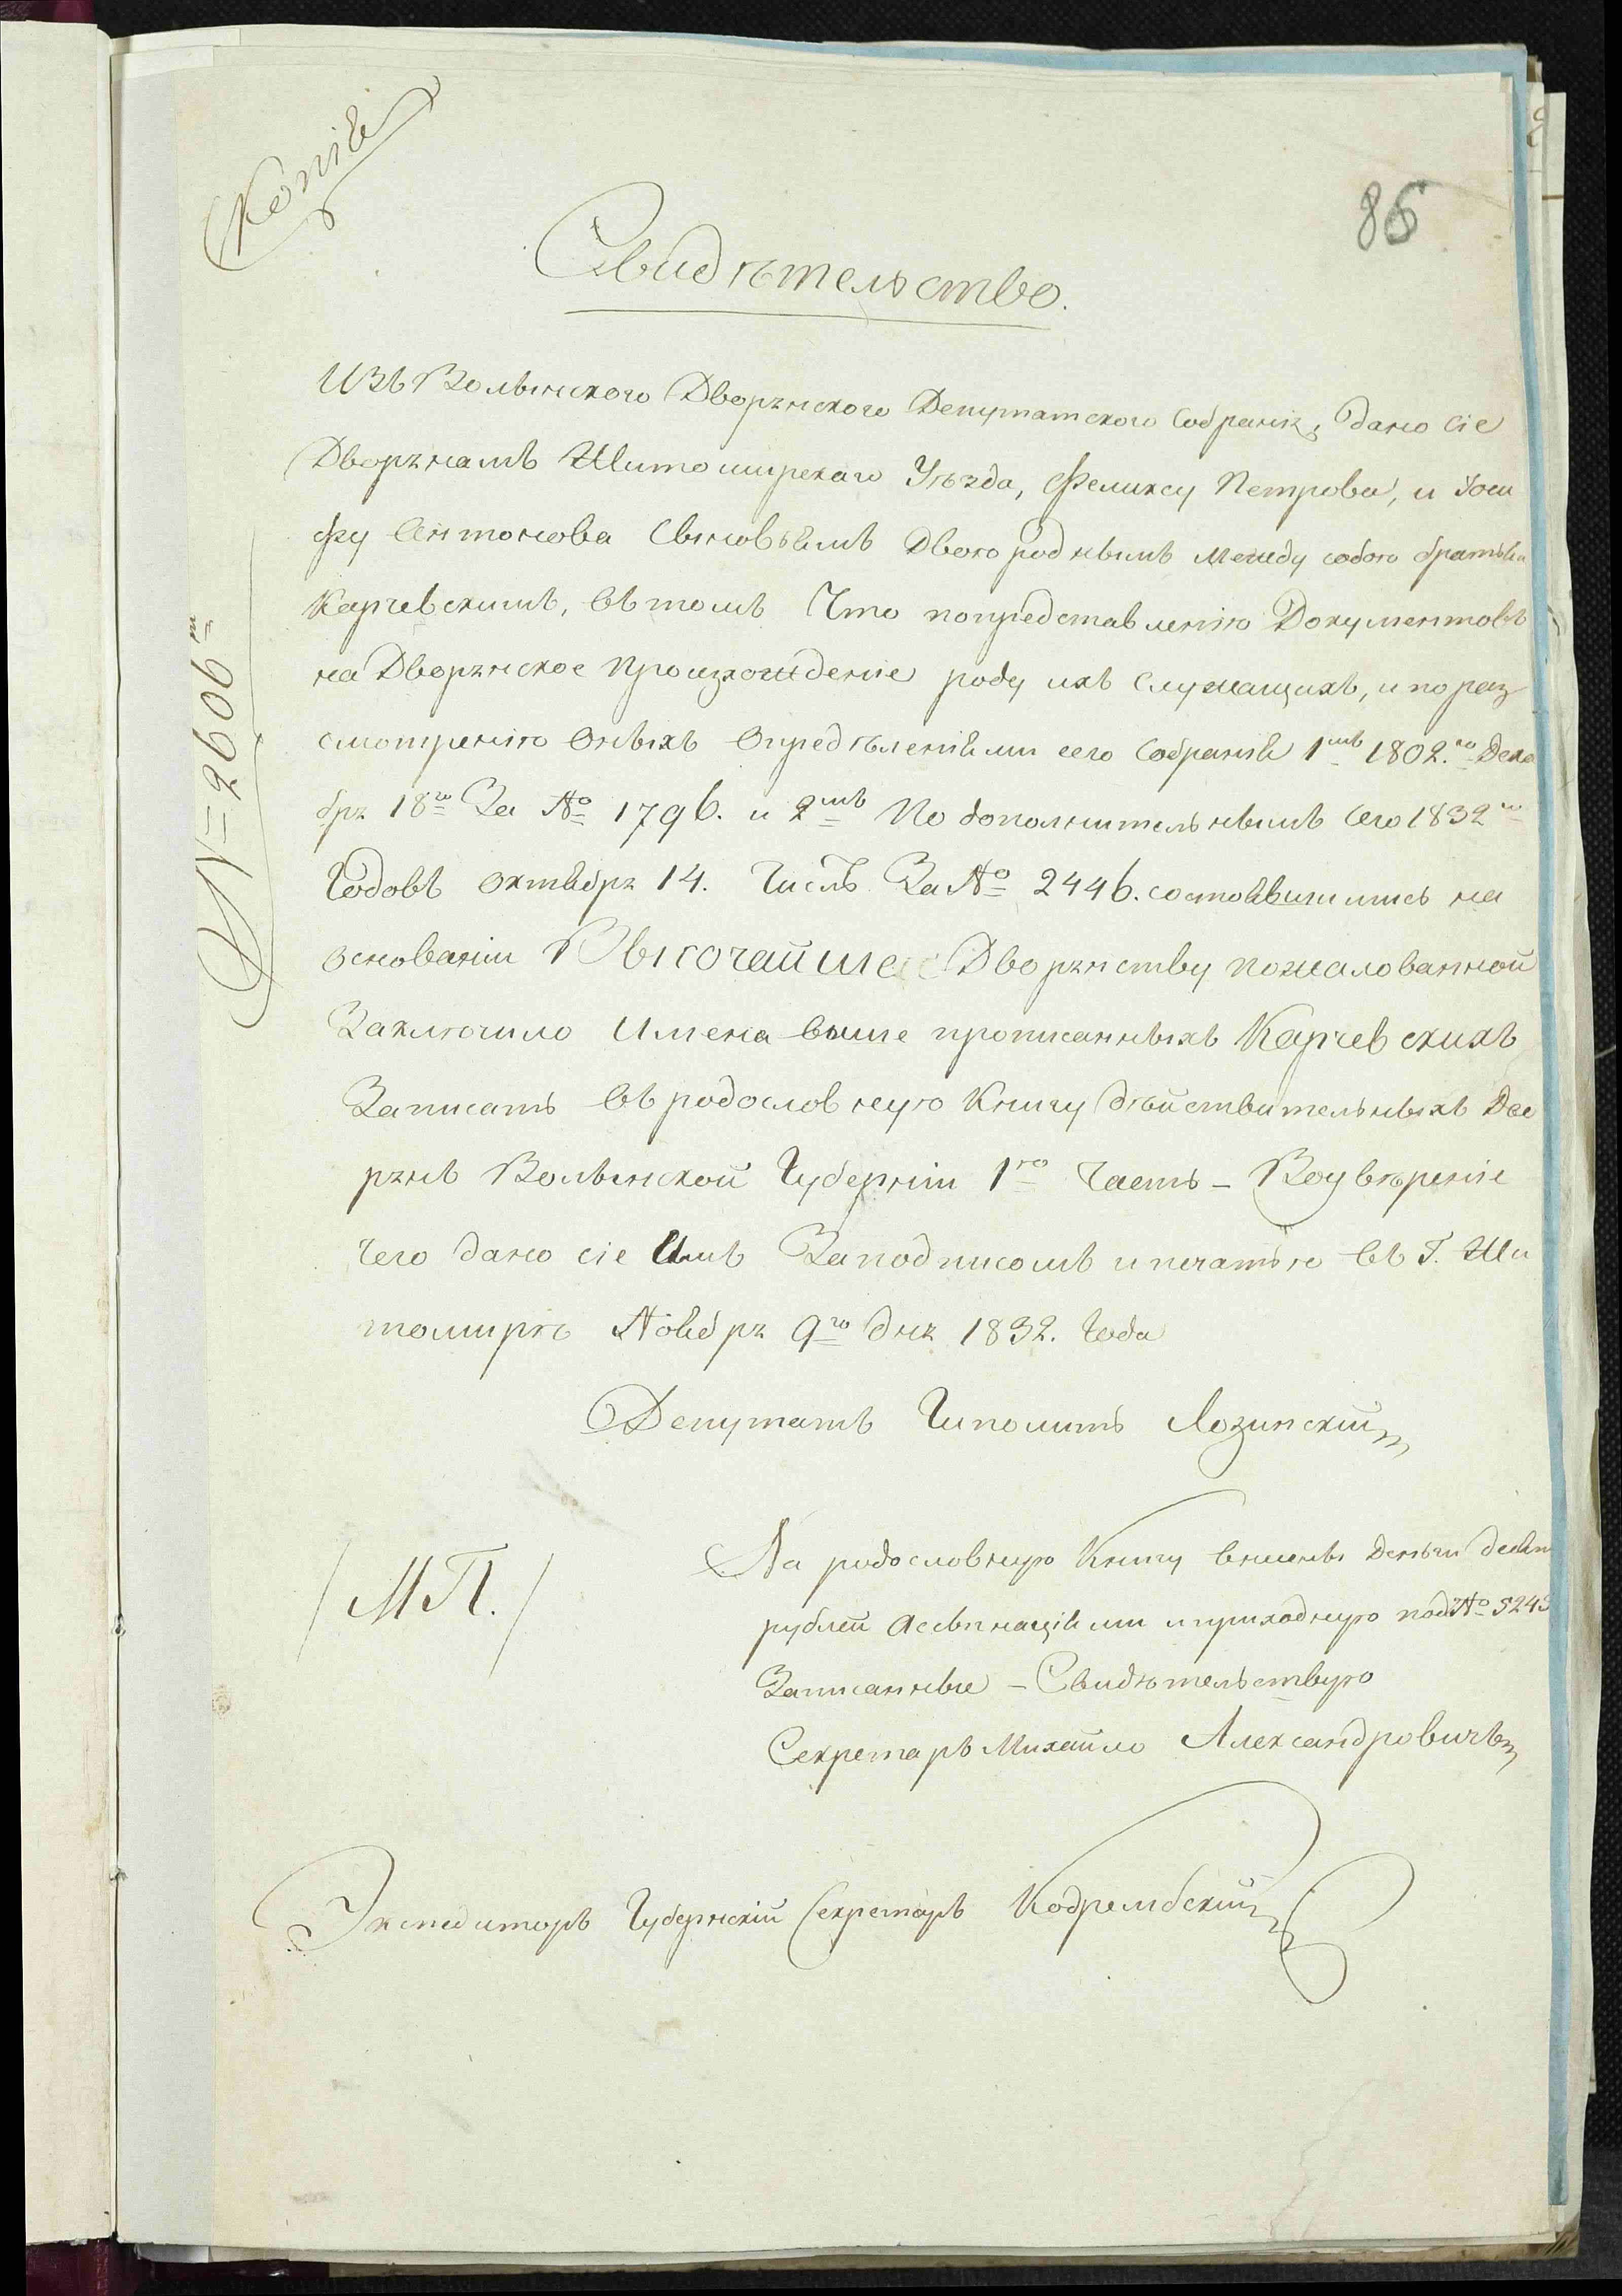 Копія
86
Свидѣтельство.
Изъ Волынского Дворянского Депутатского Собранія, дано сіе
Дворянамъ Житомирскаго Уѣзда, Феликсу Петрова, и Іоси
фу Антонова Сыновьямъ Двоюроднымъ Между собою братьям
Карчевскимъ, въ томъ Что попредставленію Документовъ
на Дворянское Произхожденіе роду ихъ Служащихъ, и по раз
смотренію Оныхъ Опредѣленіями сего Собранія 1мъ 1802.го Дека
бря 18го За № 1796. и 2мъ По дополнительнымъ Сего 1832го
Годовъ Октября 14. Числъ За № 2446. состоявшимись на
основаніи Высочайшее Дворянству пожалованной
Заключило Имена выше прописанныхъ Карчевскихъ
Записать въ родословную Книгу дѣйствительныхъ Дво
рянъ Волынской Губерніи 1го Часть – Воувѣреніе
чего дано сіе Имъ Заподписомъ и печатью въ Г. Жи
томирѣ Ноября 9го дня 1832. Года
Депутатъ Гиполитъ Лозинскій
№ 2606
/ М.П. /
На родословную Книгу внесены Деньги десят
рублей Ассыгнаціями и приходную под № 5243
Записанные – Свидѣтельствую
Секретарь Михайло Александровичъ
Экспедиторъ Губернскій Секретарь Кодрембскій